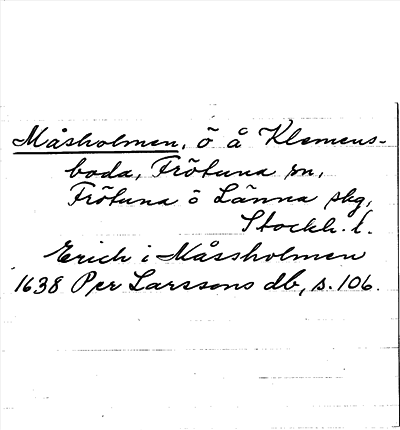 Måsholmen, ö å Klemens-
boda, Frötuna sn,
Frötuna o Länna skg,
Stockh. l.
Erich i Måssholmen
1638 Per Larssons db, s. 106.